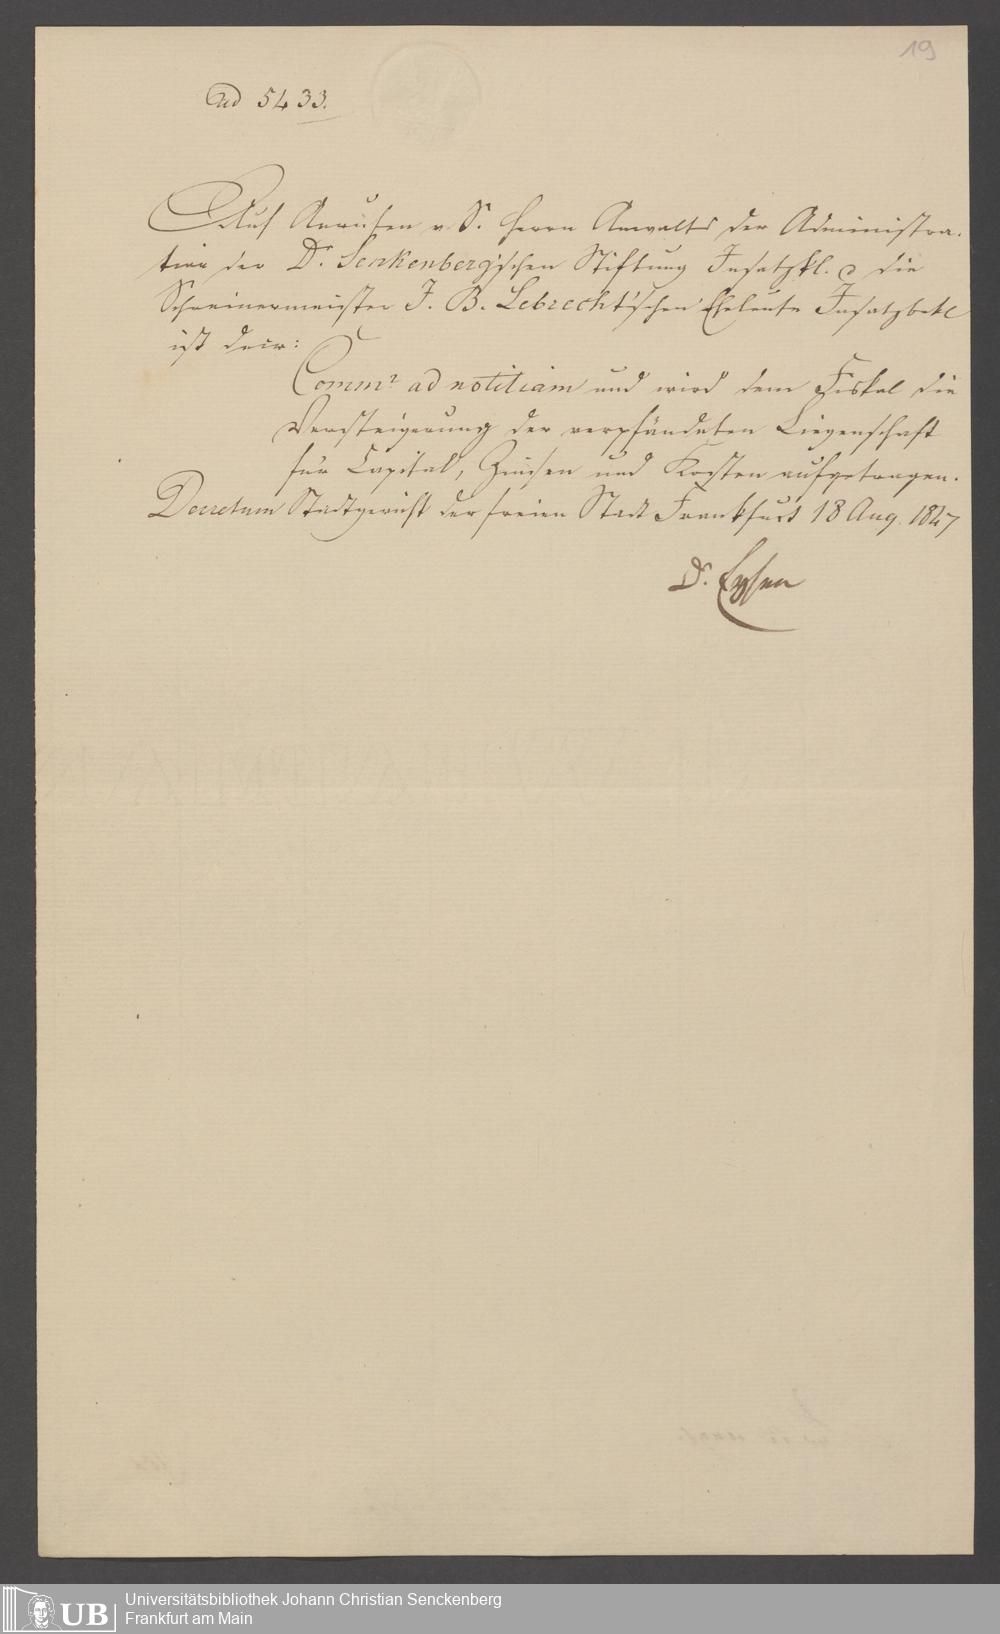 19
ad 5433.
Auf Anrufen v. S. Herrn Anwalts der Administra-
tion der Dr. Senkenberg'schen Stiftung Insatzkl. c die
Schreinermeister J. B. Lebrecht'schen Eheleute Insatzbekl
ist decr:
Commr ad notitiam und wird dem Fiskal die
Versteigerung der verpfändeten Liegenschaft
für Capital, Zinsen und Kosten aufgetragen.
Decretum Stadtgericht der freien Stadt Frankfurt 18 Aug. 1847
Dr. Eysen
UB
Universitätsbibliothek Johann Christian Senckenberg
Frankfurt am Main